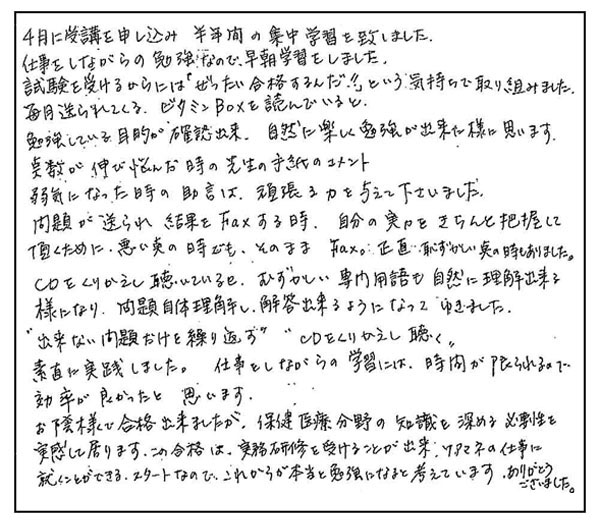 4月に受講を申し込み 半年間の集中学習を致しました.
仕事をしながらの勉強なので、早朝学習をしました.
試験を受けるからには「ぜったい合格するんだ!!」という気持ちで取り組みました.
毎月送られてくる. ビタミンBoxを読んでいると.
勉強している目的が確認出来. 自然に楽しく勉強が出来た様に思います.
点数が伸び悩んだ時の先生の手紙のコメント
弱気になった時の助言は. 頑張る力を与えて下さいました.
問題が送られ 結果をFaxする時. 自分の実力をきちんと把握して
頂くために. 悪い点の時でも、そのまま Fax。正直恥ずかしい点の時もありました。
CDをくりかえし聴いていると. むずかしい専門用語も自然に理解出来る
様になり. 問題自体理解し、解答出来るようになって ゆきました.
"出来ない問題だけを繰り返す" "CDをくりかえし聴く"
素直に実践しました。 仕事をしながらの学習には. 時間が限られるので
効率が良かったと 思います.
お陰様で合格出来ましたが. 保健医療分野の知識を深める必要性を
実感して居ります. この合格は. 実務研修を受けることが出来. ケアマネの仕事に
就くことができる. スタートなので. これからが本当と勉強になると考えています. ありがとう
ございました。